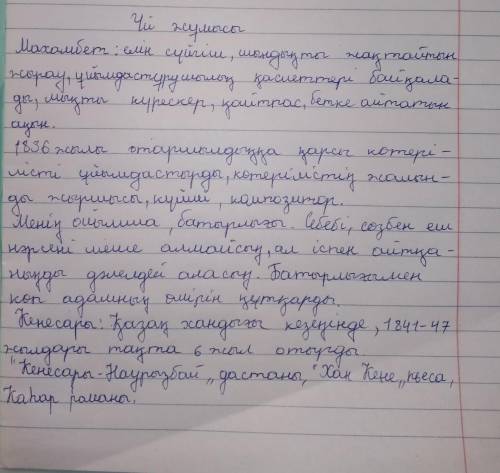 Үй жұмысы
Махамбет: елін сүйгіш, шындықты жақтайтын
жырау, ұйымдастырушылық қасиеттері байқала-
ды, мықты күрескер, қайтпас, бетке айтатын
ақын.
1836 жылы отаршылдыққа қарсы көтері-
лісті ұйымдастырды, көтерілістің жалын-
ды жыршысы, күйші, композитор.
Менің ойымша, батырлығы. Себебі, сөзбен еш
нәрсені шеше алмайсың, ал іспен айтқа-
ныңды дәлелдей аласың. Батырлығымен
көп адамның өмірін құтқарды.
Кенесары: Қазақ хандығы кезеңінде, 1841-47
жылдары тақта 6 жыл отырды
"Кенесары-Наурызбай" дастаны, "Хан Кене" пьеса,
Қаһар романы.